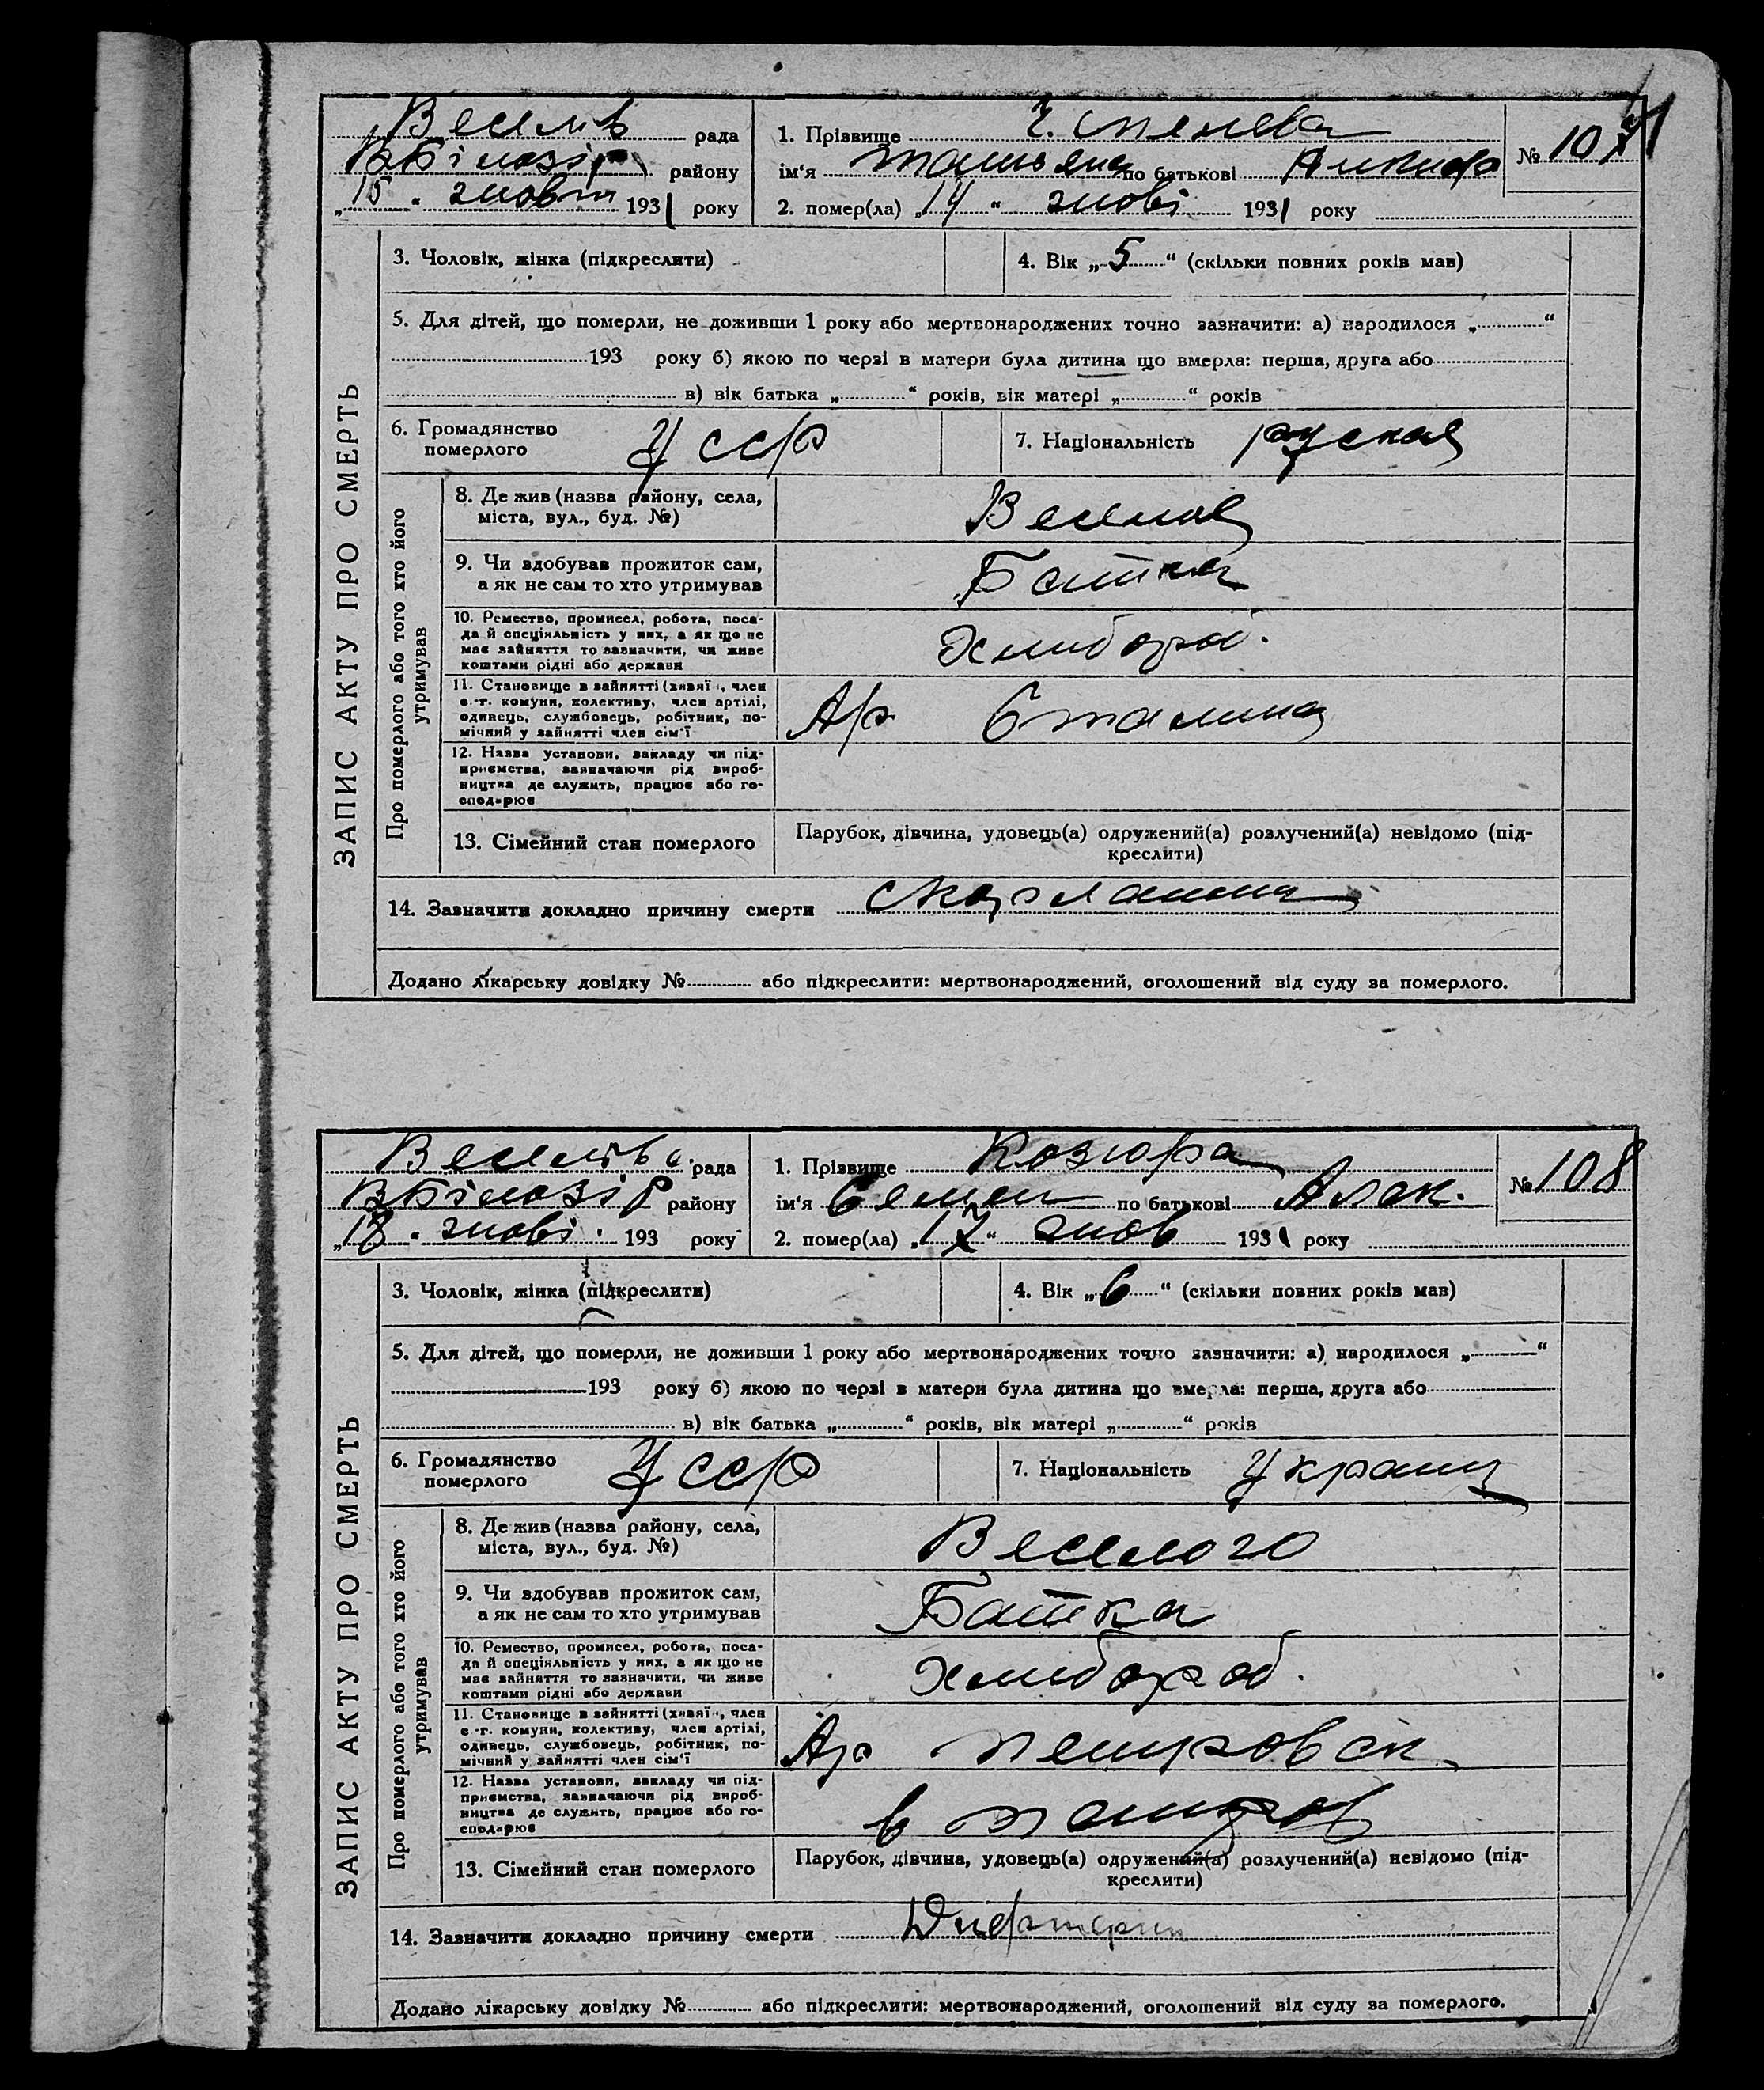 Веселів рада
ВБілозір району
„15“ жовтн 1931 року
1. Прізвище
ім'я Татьяна по батькові
№ 107
2. помер(ла) „14“ жовт 1931 року
ЗАПИС АКТУ ПРО СМЕРТЬ
3. Чоловік, жінка (підкреслити)
4. Вік „5“ (скільки повних років мав)
5. Для дітей, що померли, не доживши 1 року або мертвонароджених точно зазначити: а) народилося „ “
193 року б) якою по черзі в матери була дитина що вмерла: перша, друга або
в) вік батька „ “ років, вік матері „ “ років
6. Громадянство померлого УССР
7. Національність руская
Про померлого або того хто його утримував
8. Де жив (назва району, села, міста, вул., буд. №)
9. Чи здобував прожиток сам, а як не сам то хто утримував Батька
10. Ремество, промисел, робота, посада й спеціяльність у них, а як що не має зайняття то зазначити, чи живе коштами рідні або держави Хлибороб.
11. Становище в зайнятті (хазяїн, член с.-г. комуни, колективу, член артілі, одинець, службовець, робітник, помічний у зайнятті член сім'ї Ар Сталина
12. Назва установи, закладу чи підприємства, зазначаючи рід виробництва де служить, працює або господарює
13. Сімейний стан померлого Парубок, дівчина, удовець(а) одружений(а) розлучений(а) невідомо (підкреслити)
14. Зазначити докладно причину смерти Скарлатина
Додано лікарську довідку № або підкреслити: мертвонароджений, оголошений від суду за померлого.
рада
ВБілозір району
„18“ жовт. 193 року
1. Прізвище Козюра
ім'я Семен по батькові Алек.
№ 108
2. помер(ла) „17“ жов 1931 року
ЗАПИС АКТУ ПРО СМЕРТЬ
3. Чоловік, жінка (підкреслити)
4. Вік „6“ (скільки повних років мав)
5. Для дітей, що померли, не доживши 1 року або мертвонароджених точно зазначити: а) народилося „ “
193 року б) якою по черзі в матери була дитина що вмерла: перша, друга або
в) вік батька „ “ років, вік матері „ “ років
6. Громадянство померлого УССР
7. Національність Украин
Про померлого або того хто його утримував
8. Де жив (назва району, села, міста, вул., буд. №) Веселого
9. Чи здобував прожиток сам, а як не сам то хто утримував Батька
10. Ремество, промисел, робота, посада й спеціяльність у них, а як що не має зайняття то зазначити, чи живе коштами рідні або держави Хлибороб.
11. Становище в зайнятті (хазяїн, член с.-г. комуни, колективу, член артілі, одинець, службовець, робітник, помічний у зайнятті член сім'ї Ар Петровск
12. Назва установи, закладу чи підприємства, зазначаючи рід виробництва де служить, працює або господарює
13. Сімейний стан померлого Парубок, дівчина, удовець(а) одружений(а) розлучений(а) невідомо (підкреслити)
14. Зазначити докладно причину смерти Дифтерит
Додано лікарську довідку № або підкреслити: мертвонароджений, оголошений від суду за померлого.